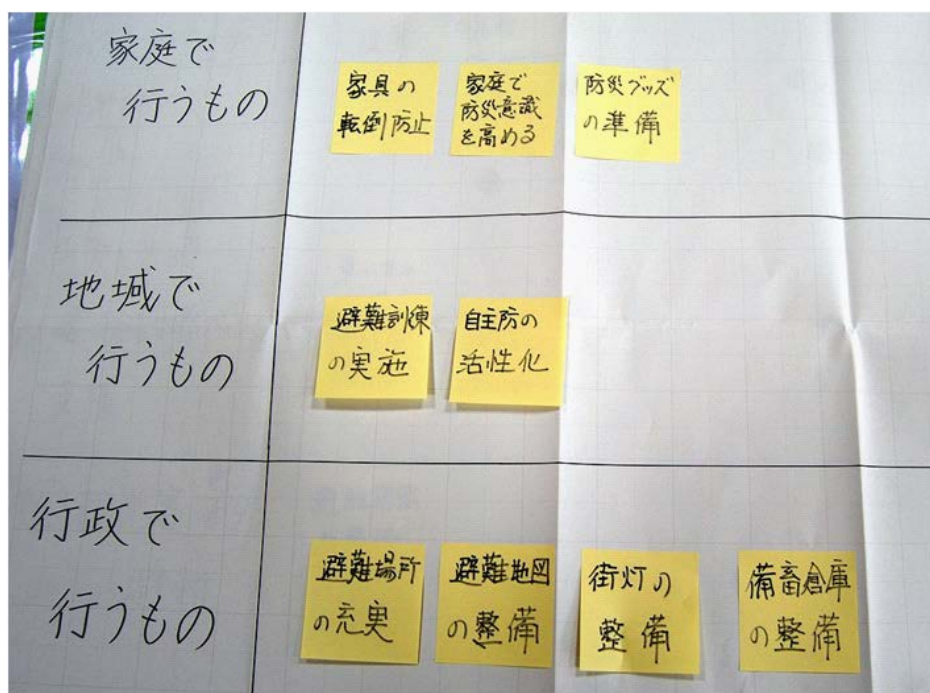 家庭で
行うもの
家具の
転倒防止
家庭で
防災意識
を高める
防災グッズ
の準備
地域で
行うもの
避難訓練
の実施
自主防の
活性化
行政で
行うもの
避難場所
の充実
避難地図
の整備
街灯の
整備
備畜倉庫
の整備